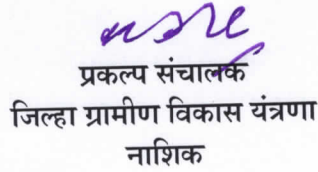 प्रकल्प संचालक
जिल्हा ग्रामीण विकास यंत्रणा
नाशिक